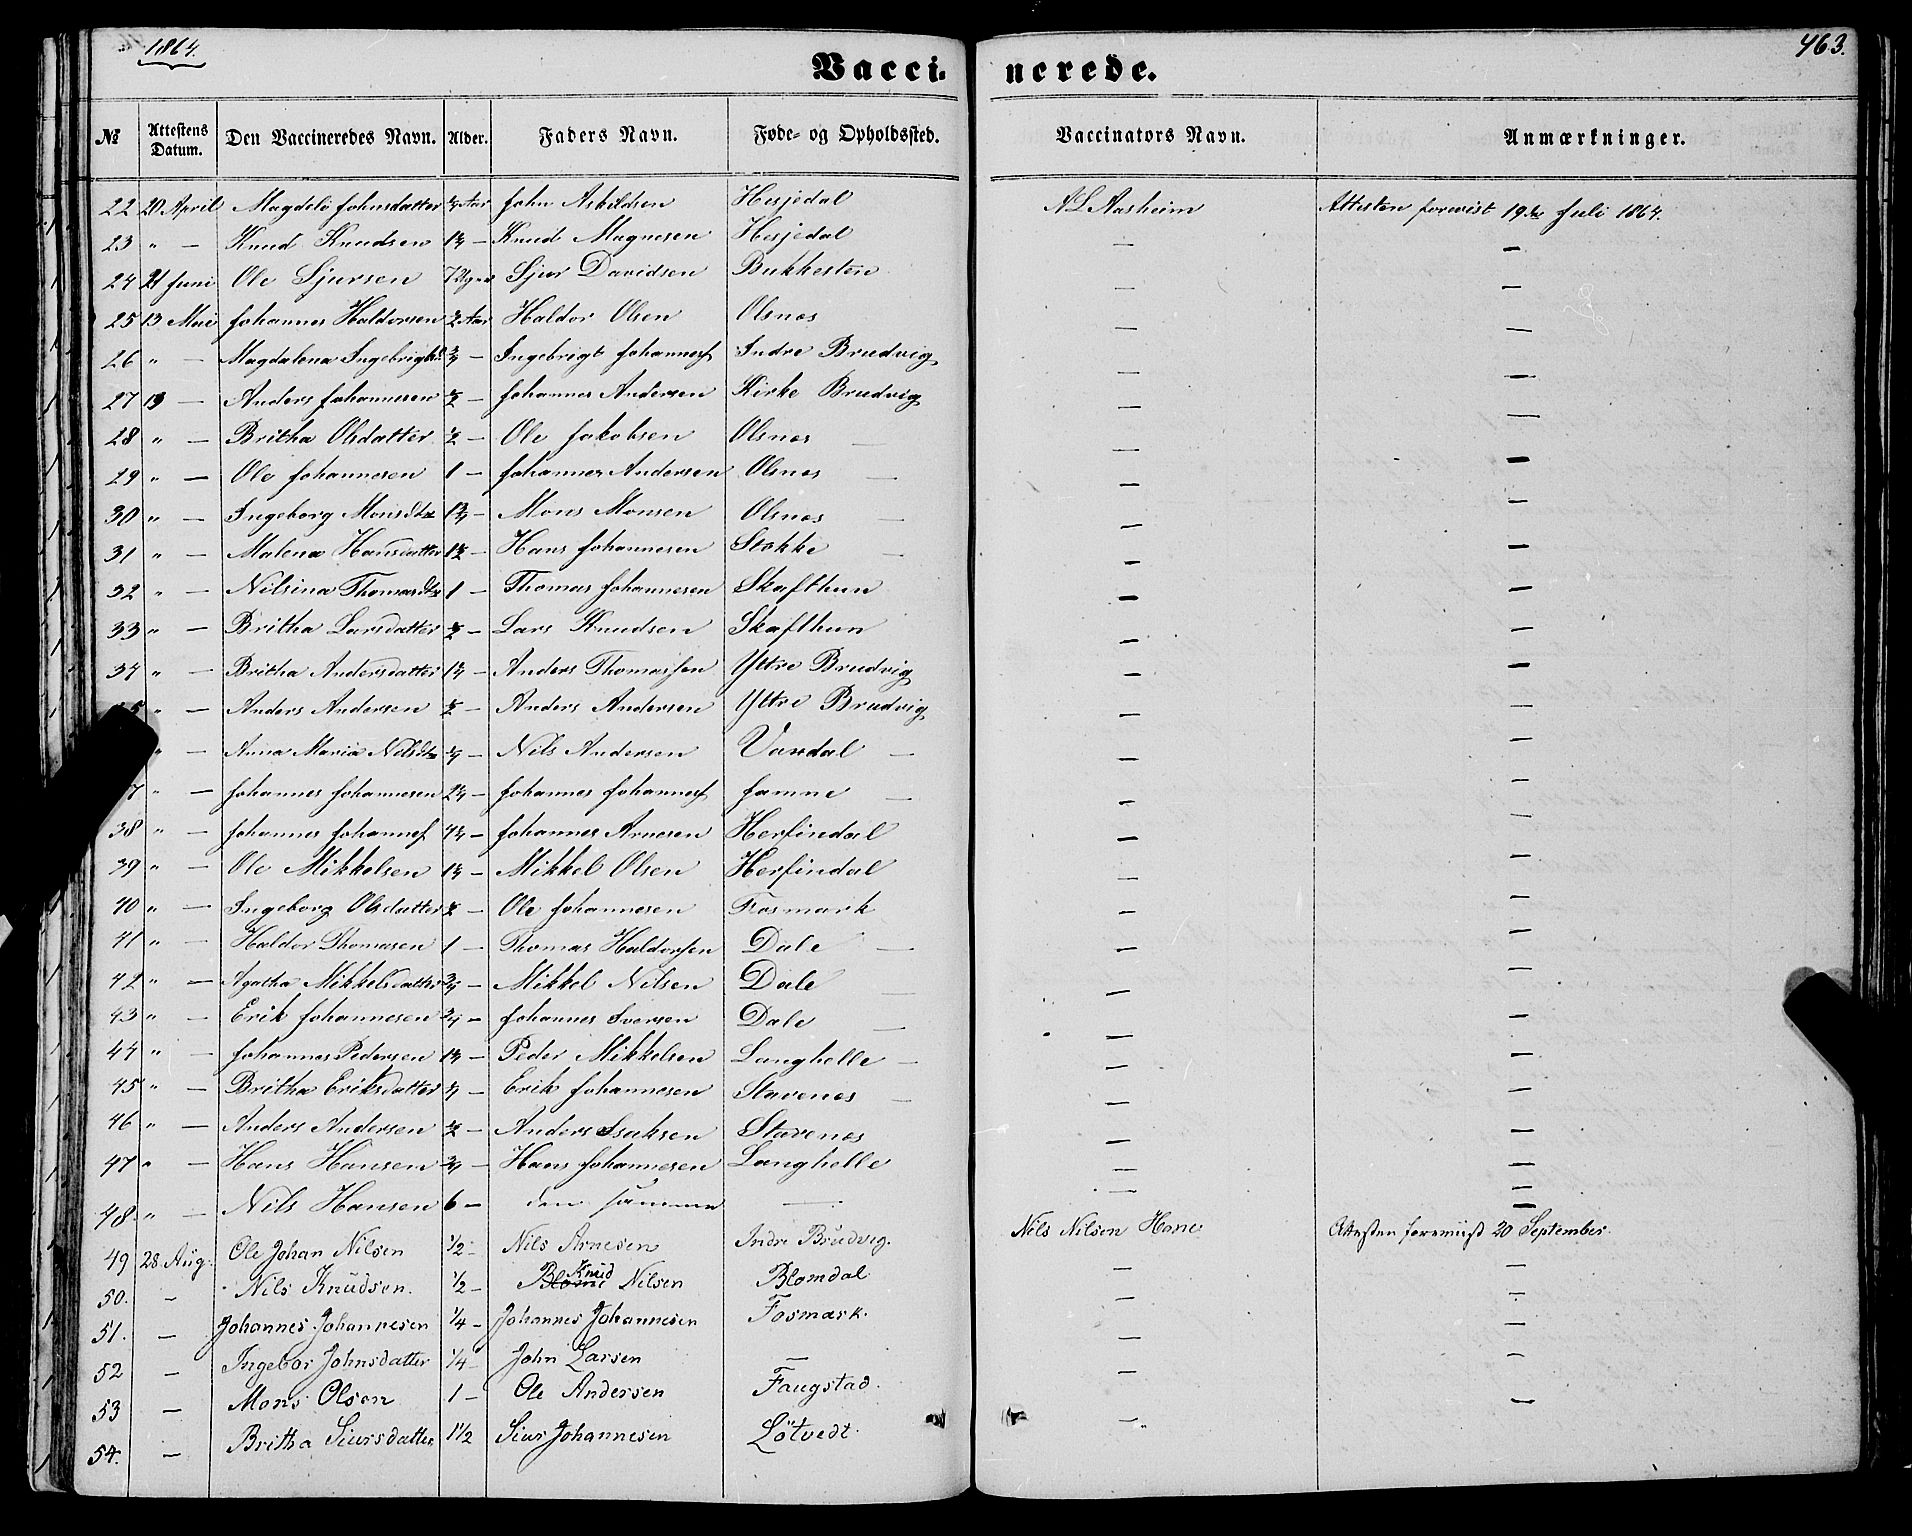 1864.
463.
Vaccinerede.
№ Attestens Datum. Den Vaccineredes Navn. Alder. Faders Navn. Føde- og Opholdssted. Vaccinators Navn. Anmærkninger.
22 20 April Magdele Johnsdatter Aar John Askildsen Hesjedal A L Aasheim Attesten foreviist 19de Juli 1864.
23 " — Knud Knudsen 1½ — Knud Magnesen Hesjedal — —
24 21 Juni Ole Sjursen Sjur Davidsen Bukkesten — —
25 13 Mai Johannes Haldorsen ½ Aar Haldor Olsen Olsnes — —
26 " — Magdalena Ingebrigtsd ¾ — Ingebrigt Johannesf Indre Brudvig — —
27 13 — Anders Johannesen ½ — Johannes Andersen Kirke Brudvig — —
28 " — Britha Olsdatter ½ — Ole Jakobsen Olsnes — — —
29 " — Ole Johannesen 1 — Johannes Andersen Olsnes — — —
30 " — Ingeborg Monsdtr 1¾ — Mons Monsen Olsnes — — —
31 " — Malena Hansdatter 1½ — Hans Johannesen Stokke — — —
32 " — Nilsina Thomasdtr 1 — Thomas Johannesen Skafthun — —
33 " — Britha Larsdatter ½ — Lars Knudsen Skafthun — —
34 " — Britha Andersdatter 1¼ — Anders Thomassen Yttre Brudvig — —
35 " — Anders Andersen ½ — Anders Andersen Yttre Brudvig — —
" — Anna Maria Nilsdtr ¼ — Nils Andersen Vardal — — —
7 " — Johannes Johannesen 2¼ — Johannes Johannesf Jamne — — —
38 " — Johannes Johannesf 4½ — Johannes Arnesen Herfindal — —
39 " — Ole Mikkelsen 1¼ — Mikkel Olsen Herfindal — —
40 " — Ingeborg Olsdatter ½ — Ole Johannesen Fosmark — —
41 " — Haldor Thomasen 1 — Thomas Haldorsen Dale — — —
42 " — Agatha Mikkelsdatter ¾ — Mikkel Nilsen Dale — — —
43 " — Erik Johannesen ¾ — Johannes Iversen Dale — — —
44 " — Johannes Pedersen 1¼ — Peder Mikkelsen Langhelle — — —
45 " — Britha Eriksdatter ¾ — Erik Johannesen Stavenes — — —
46 " — Anders Andersen ½ — Anders Isaksen Stavenes — —
47 " — Hans Hansen ¾ — Hans Johannesen Langhelle — —
48. " — Nils Hansen 6 — den samme — — —
49 28 Aug. Ole Johan Nilsen ½ — Nils Arnesen Indre Brudvig. Nils Nilsen Hane Attesten foreviist 20 September.
50. — Nils Knudsen. ½ — Knud Nilsen Blomdal — —
51. — Johannes Johannesen ¼ — Johannes Johannesen Fosmark. — —
52 — Ingebor Johnsdatter ¼ — John Larsen — — —
53 — Mons Olsen 1 — Ole Andersen Faugstad. — —
54. — Britha Siursdatter 1½ Siur Johannesen Lötvedt. — "